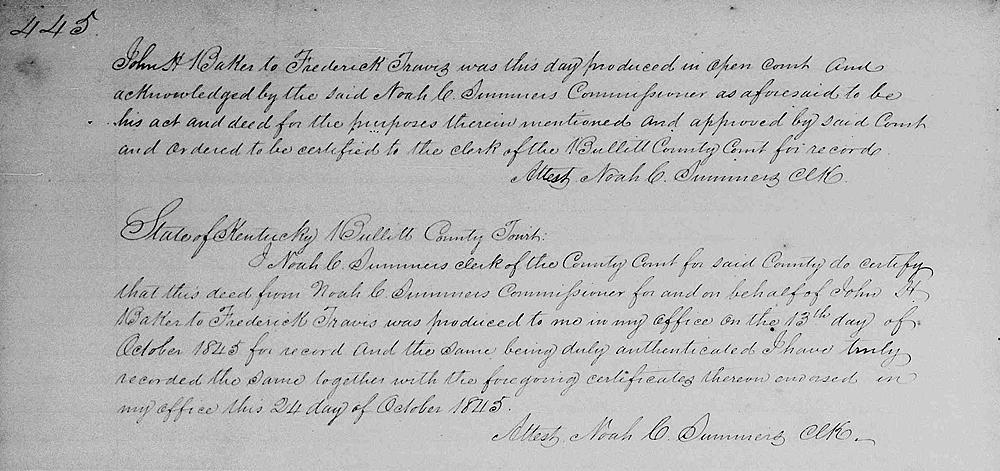 445.
John H Baker to Frederick Travis was this day produced in open court and
acknowledged by the said Noah C. Summers Commissioner as aforesaid to be
his act and deed for the purposes therein mentioned and approved by said Court
and ordered to be certified to the clerk of the Bullitt County Court for record.
Attest. Noah C. Summers Clk.
State of Kentucky Bullitt County Court:
I Noah C. Summers clerk of the County Court for said County do certify
that this deed from Noah C Summers Commissioner for and on behalf of John H.
Baker to Frederick Travis was produced to me in my office on the 13th day of
October 1845 for record and the same being duly authenticated I have truly
recorded the same together with the foregoing certificates thereon endorsed in
my office this 24 day of October 1845.
Attest. Noah C. Summers Clk.